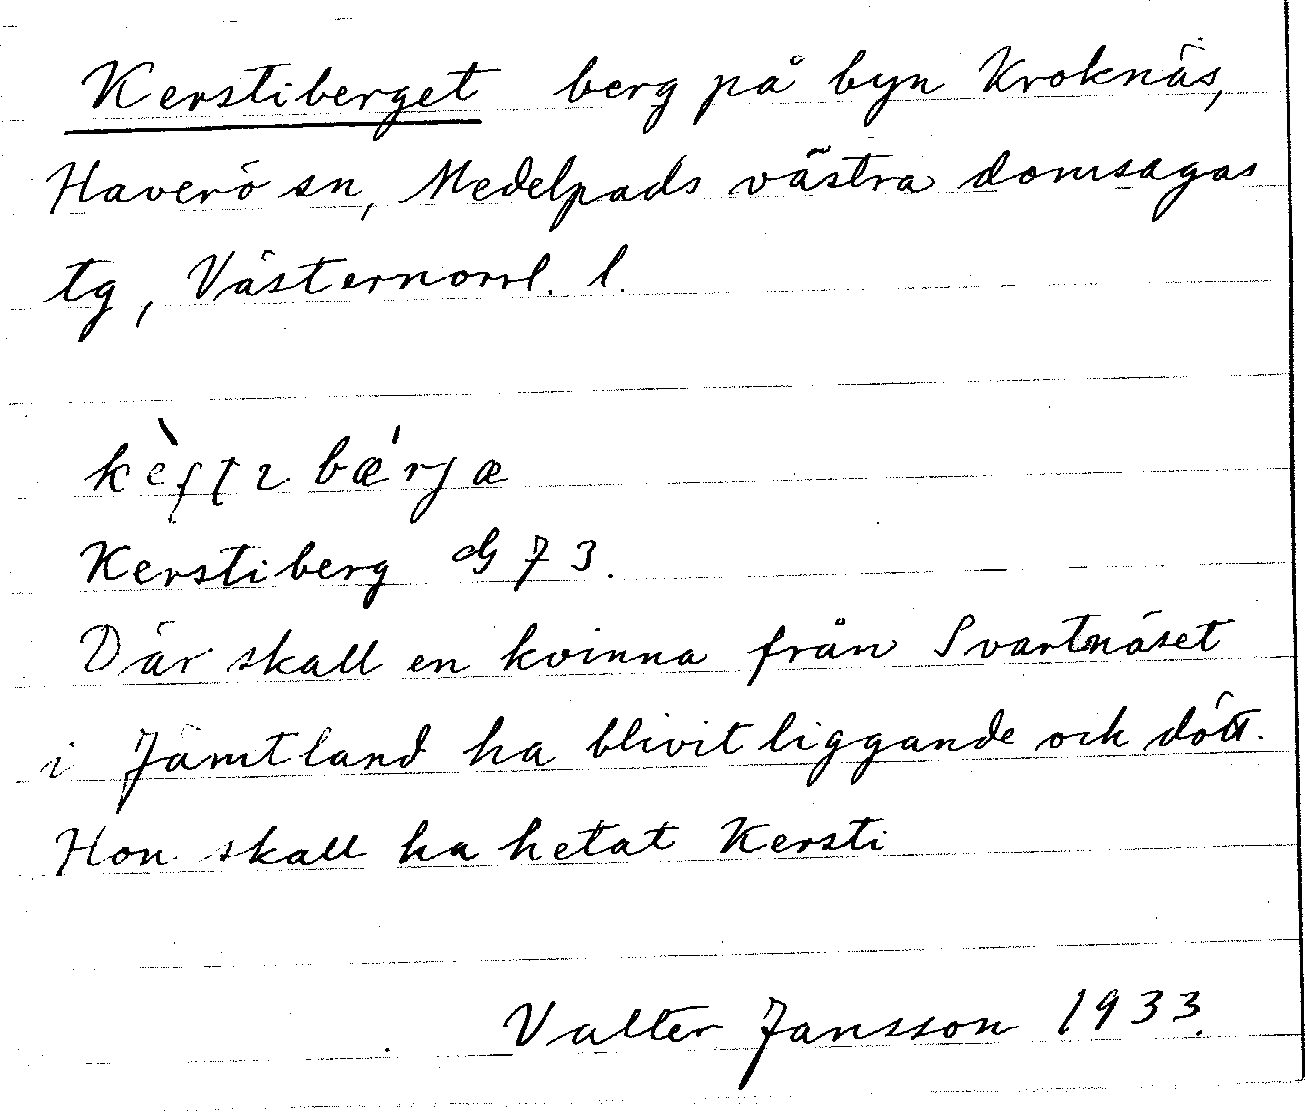 Kerstiberget berg på byn Kroknäs,
Haverö sn, Medelpads västra domsagas
tg, Västernorrl. l.
Kerstiberg G 73.
Där skall en kvinna från Svartnäset
i Jämtland ha blivit liggande och dött.
Hon skall ha hetat Kersti
Valter Jansson 1933.